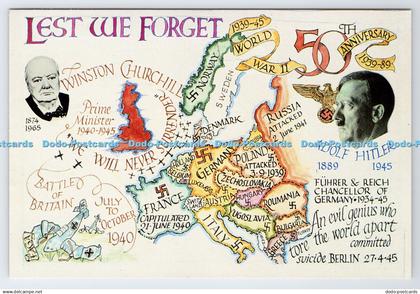 LEST WE FORGET
1939-45
WORLD
WAR II
50TH
ANNIVERSARY
1939-89
WINSTON CHURCHILL
1874
1965
Prime
Minister
1940-1945
WILL NEVER SURRENDER
NORWAY
SWEDEN
DENMARK
RUSSIA
ATTACKED
June 1941
ADOLF HITLER
1889 1945
FÜHRER & REICH
CHANCELLOR OF
GERMANY·1934-45
An evil genius who
tore the world apart
committed
suicide BERLIN 27·4·45
BATTLE of
BRITAIN
JULY TO
OCTOBER
1940
GERMANY
POLAND
ATTACKED
3·9·1939
CZECHOSLOVAKIA
AUSTRIA
HUNGARY
ROUMANIA
YUGOSLAVIA
BULGARIA
FRANCE
CAPITULATED
21 JUNE 1940
ITALY
www.dodo-postcards.com
dodo-postcards.com